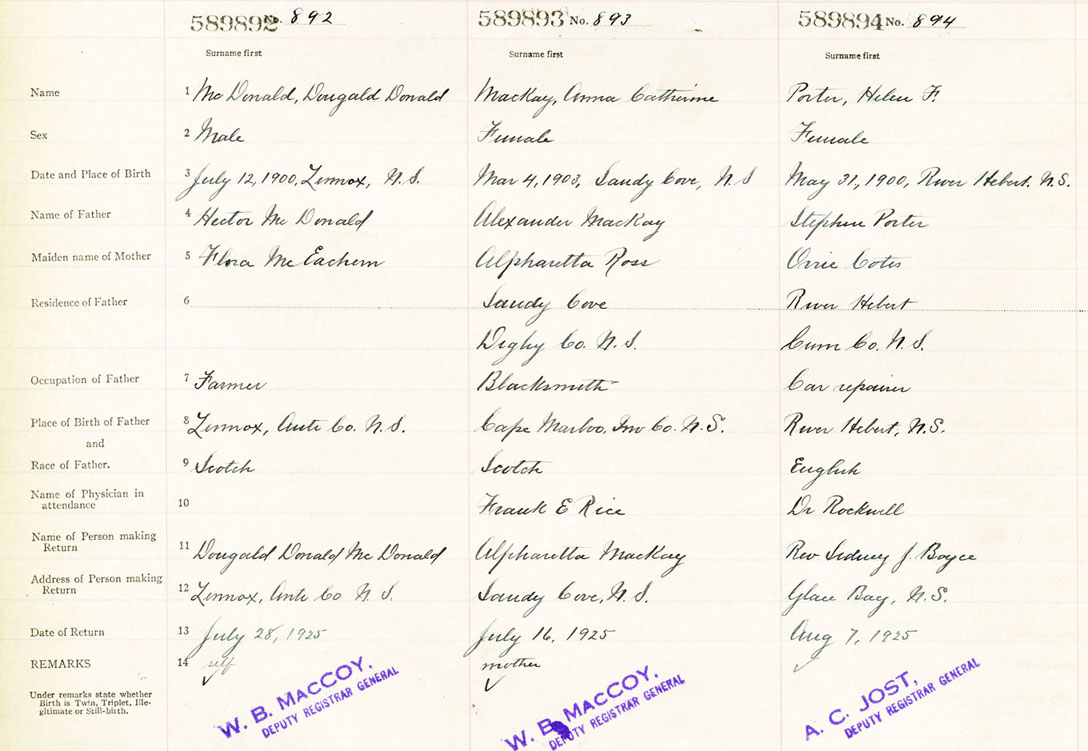 589892 No. 892 589893 No. 893 589894 No. 894
Surname first Surname first Surname first
Name 1 Mc Donald, Dougald Donald MacKay, Anna Catherine Porter, Helen F.
Sex 2 Male Female Female
Date and Place of Birth 3 July 12, 1900, Lennox, N.S. Mar 4, 1903, Sandy Cove, N.S May 31, 1900, River Hebert. N.S.
Name of Father 4 Hector Mc Donald Alexander MacKay Stephen Porter
Maiden name of Mother 5 Flora Mc Eachern Alpharetta Ross Orrie Cotes
Residence of Father 6 Sandy Cove River Hebert
Digby Co. N.S. Cum Co. N.S.
Occupation of Father 7 Farmer Blacksmith Car repairer
Place of Birth of Father 8 Lennox, Anti Co. N.S. Cape Marboo, Inv Co. N.S. River Hebert, N.S.
and
Race of Father. 9 Scotch Scotch English
Name of Physician in
attendance 10 Frank E Rice Dr Rockwell
Name of Person making
Return 11 Dougald Donald Mc Donald Alpharetta MacKay Rev Sidney J. Boyce
Address of Person making
Return 12 Lennox, Anti Co N.S. Sandy Cove, N.S. Glace Bay, N.S.
Date of Return 13 July 28, 1925 July 16, 1925 Aug 7, 1925
REMARKS 14 self mother
Under remarks state whether
Birth is Twin, Triplet, Ille-
gitimate or Still-birth.
W. B. MACCOY, W. B. MACCOY, A. C. JOST,
DEPUTY REGISTRAR GENERAL DEPUTY REGISTRAR GENERAL DEPUTY REGISTRAR GENERAL